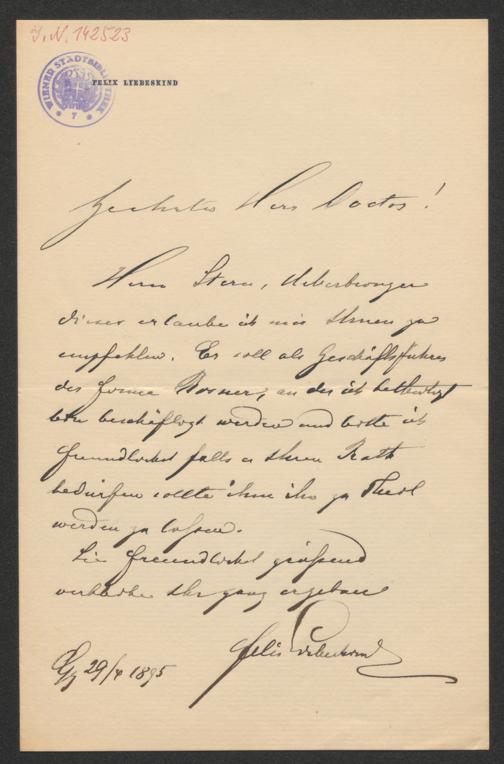 J. N. 142523
WIENER STADTBIBLIOTHEK
7
FELIX LIEBESKIND
Geehrter Herr Doctor!
Herrn Stern, Ueberbringer
dieses erlaube ich mir Ihnen zu
empfehlen. Er soll als Geschäftsführer
der Firma Rosner, an der ich betheiligt
bin beschäftigt werden und bitte ich
freundlichst falls er Ihren Rath
bedürfen sollte ihm ihn zu Theil
werden zu lassen.
Sie freundlichst grüssend
verbleibe Ihr ganz ergebener
Felix Liebeskind
Lpzg 29/4 1895